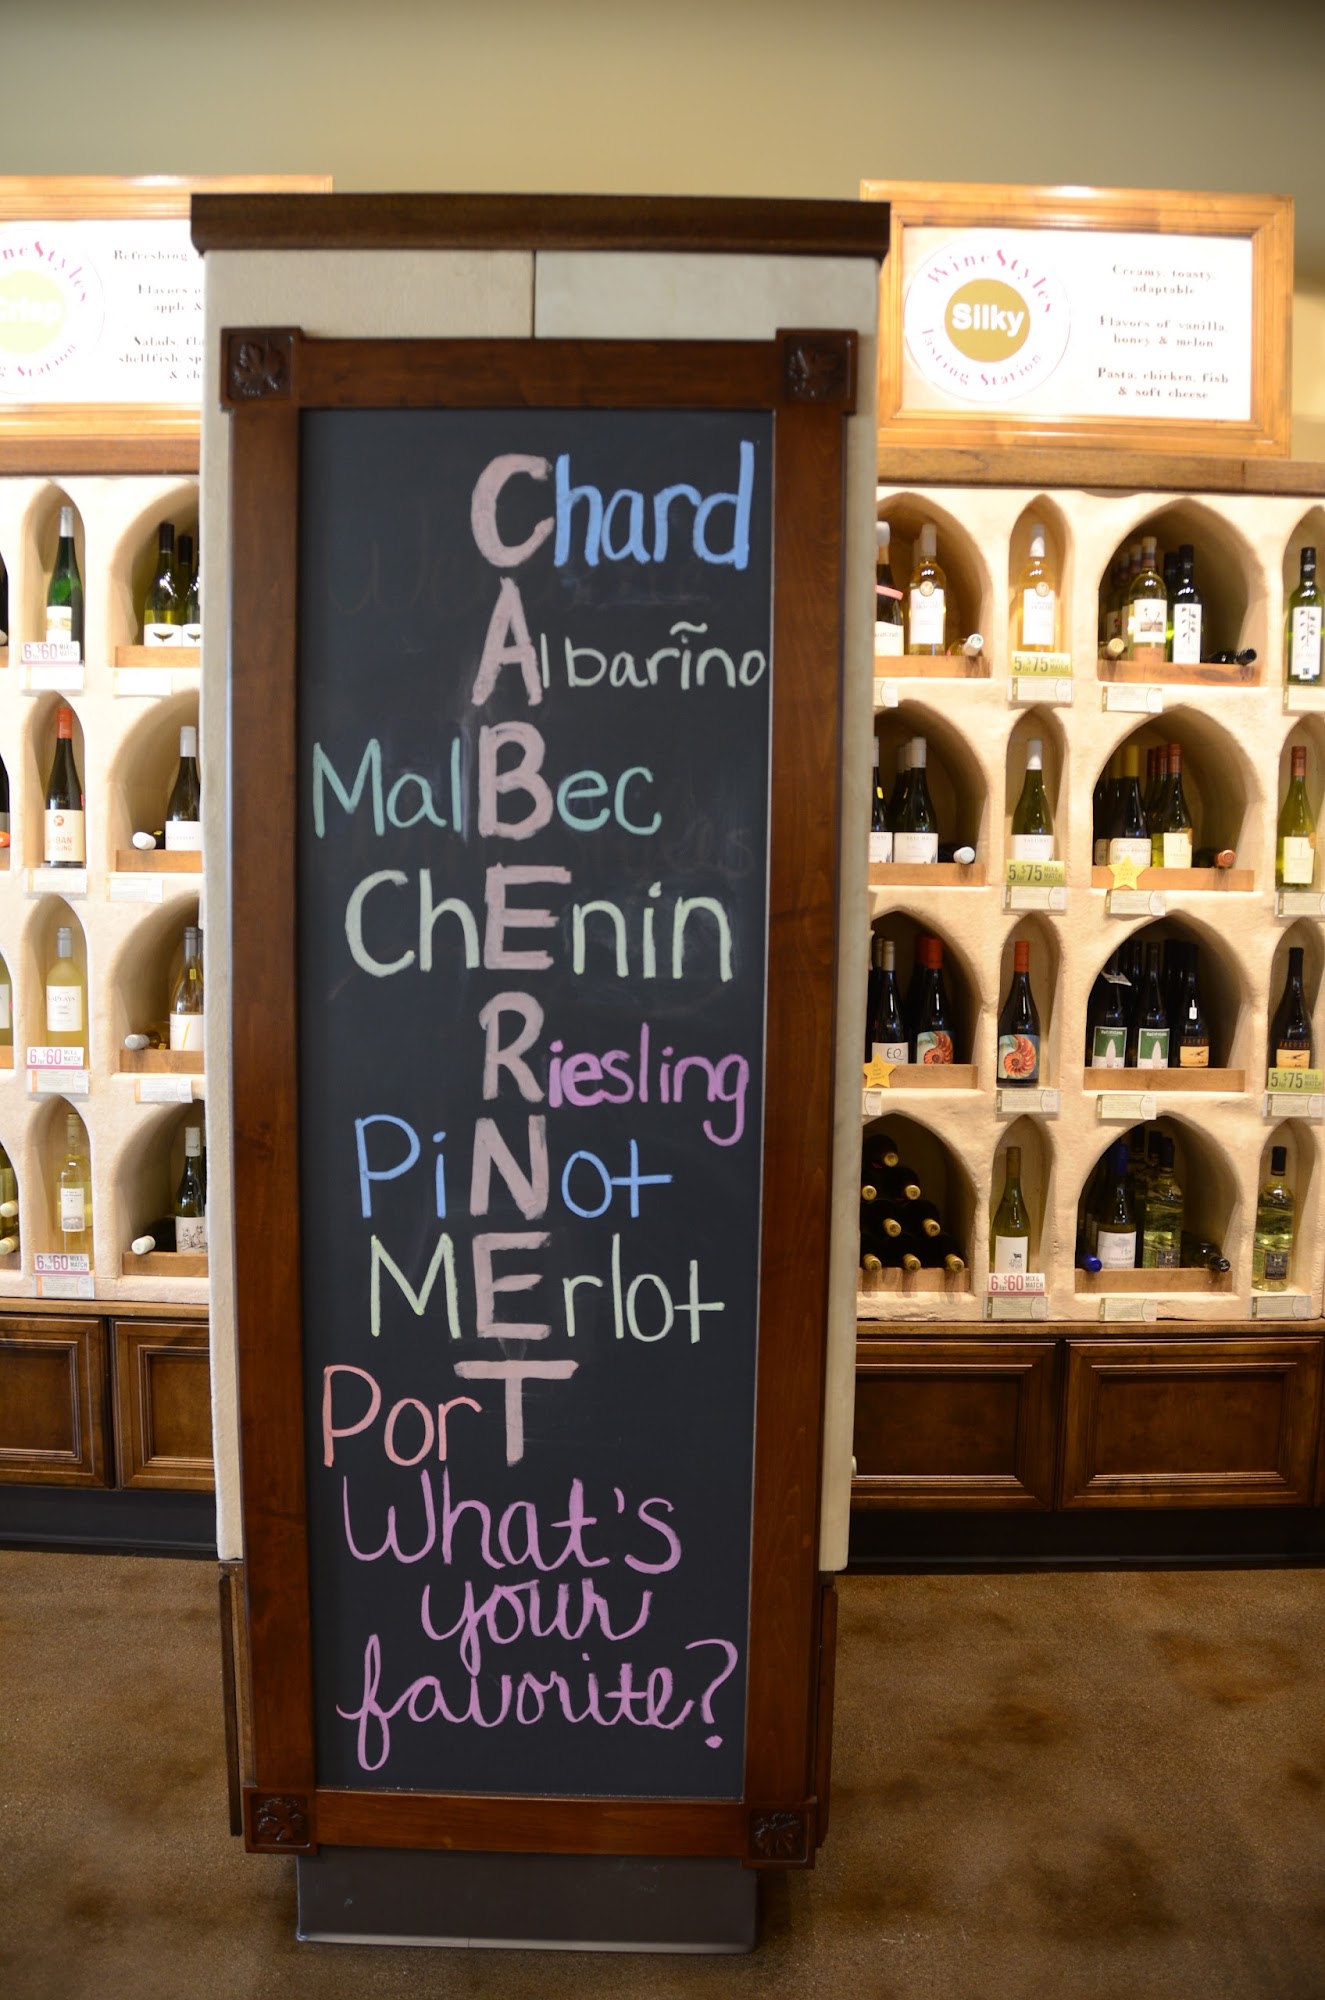 WineStyles
Silky
Tasting Station
Creamy, toasty,
adaptable
Flavors of vanilla,
honey & melon
Pasta, chicken, fish
& soft cheese
Crisp
Refreshing
Flavors
apple &
Salads,
shellfish,
&
Chard
Albariño
MalBec
ChEnin
Riesling
PiNot
MErlot
PorT
What's
your
favorite?
6 for $60 MIX & MATCH
6 for $60 MIX & MATCH
6 for $60 MIX & MATCH
5 for $75 MIX & MATCH
5 for $75 MIX & MATCH
EQ
5 for $75 MIX & MATCH
6 for $60 MIX & MATCH